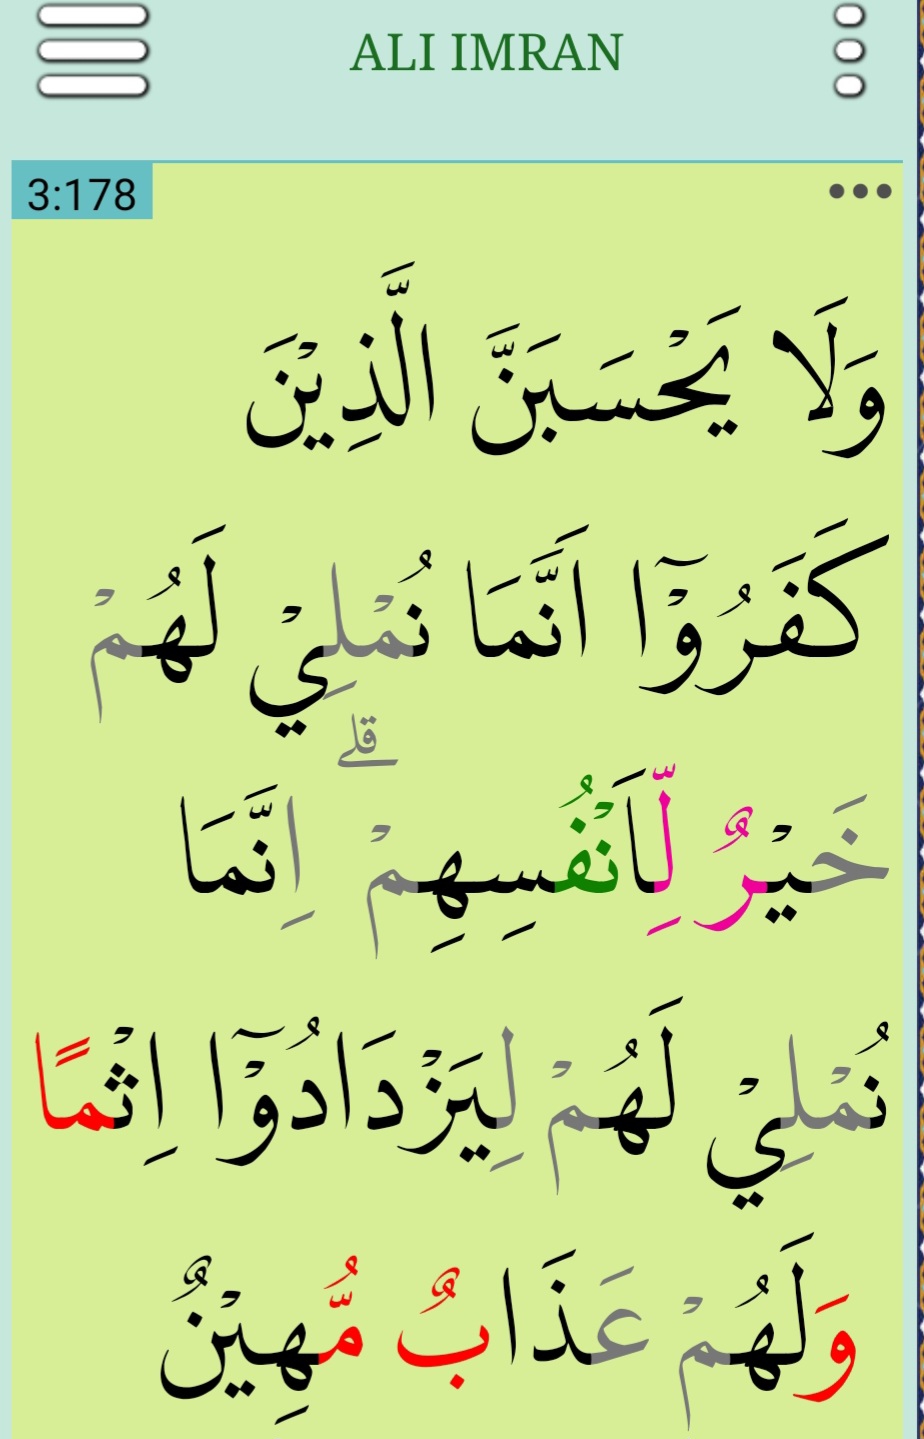 ALI IMRAN
3:178
وَلَا يَحْسَبَنَّ الَّذِيْنَ
كَفَرُوْٓا اَنَّمَا نُمْلِيْ لَهُمْ
خَيْرٌ لِّاَنْفُسِهِمْ ۗ اِنَّمَا
نُمْلِيْ لَهُمْ لِيَزْدَادُوْٓا اِثْمًا
وَلَهُمْ عَذَابٌ مُّهِيْنٌ